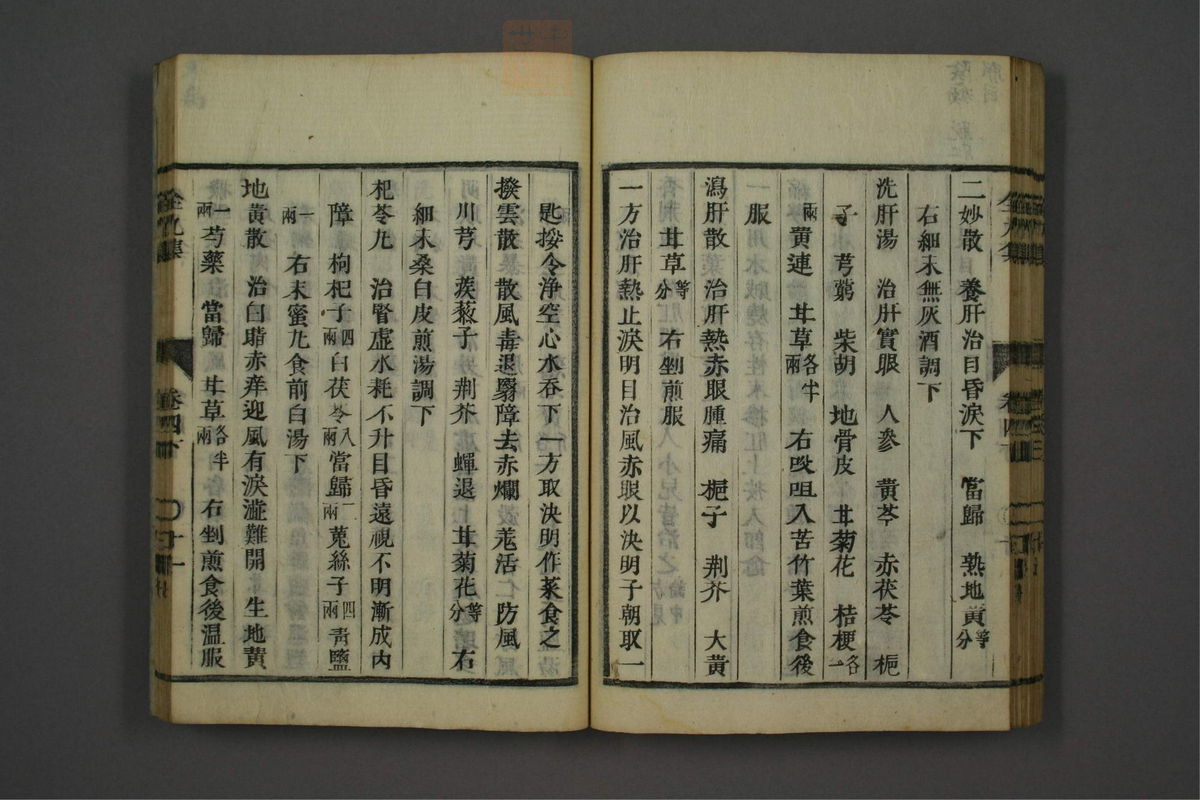 二妙散 養肝治目昏淚下 當歸 熟地黄等分
右細末無灰酒調下
洗肝湯 治肝實眼 人參 黄芩 赤茯苓 梔
子 芎藭 柴胡 地骨皮 甘菊花 桔梗各一
兩黄連 甘草各半兩 右㕮咀入苦竹葉煎食後
服
瀉肝散 治肝熱赤眼腫痛 梔子 荆芥 大黄
甘草等分 右剉煎服
一方治肝熱止淚明目治風赤眼以決明子朝取一
匙挼令淨空心水吞下一方取決明作菜食之
撥雲散 散風毒退翳障去赤爛 羌活 防風
川芎 蒺藜子 荆芥 蟬退 甘菊花等分 右
細末桑白皮煎湯調下
杞苓丸 治腎虛水耗不升目昏遠視不明漸成内
障 枸杞子四兩白茯苓八兩當歸二兩菟絲子四兩青鹽
一兩 右末蜜丸食前白湯下
地黄散 治白睛赤痒迎風有淚澁難開 生地黄
一兩芍藥 當歸 甘草各半兩 右剉煎食後温服
卷四下
十一